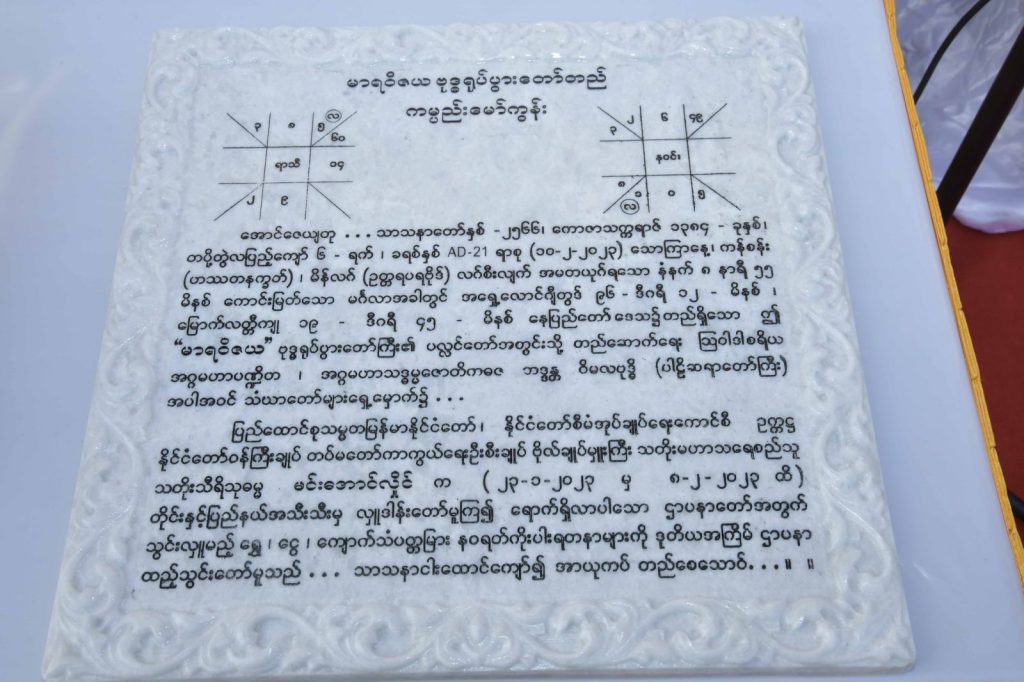 မာရဝိဇယ ဗုဒ္ဓရုပ်ပွားတော်တည်
ကမ္ပည်းမော်ကွန်း
၃ ၈ ၅ လ ၆၀
ရာသီ ၀၄
၂ ၉
၃ ၂ ၆ ၄၉
နဝင်း
၈ ၁ လ ၀ ၅
အောင်ဇေယျတု ... သာသနာတော်နှစ် -၂၅၆၆၊ ကောဇာသက္ကရာဇ် ၁၃၈၄ - ခုနှစ်၊
တပို့တွဲလပြည့်ကျော် ၆ - ရက် ၊ ခရစ်နှစ် AD-21 ရာစု (၁၀-၂-၂၀၂၃) သောကြာနေ့၊ ကန်စန်း
(ဟဿတနက္ခတ်) ၊ မိန်လဂ် (ဥတ္တရပရပိုဒ်) လဂ်စီးလျက် အမတယုဂ်ရသော နံနက် ၈ နာရီ ၅၅
မိနစ် ကောင်းမြတ်သော မင်္ဂလာအခါတွင် အရှေ့လောင်ဂျီတွဒ် ၉၆ - ဒီဂရီ ၁၂ - မိနစ် ၊
မြောက်လတ္တီကျု ၁၉ - ဒီဂရီ ၄၅ - မိနစ် နေပြည်တော် ဒေသ၌တည်ရှိသော ဤ
“မာရဝိဇယ” ဗုဒ္ဓရုပ်ပွားတော်ကြီး၏ ပလ္လင်တော်အတွင်းသို့ တည်ဆောက်ရေး ဩဝါဒါစရိယ
အဂ္ဂမဟာပဏ္ဍိတ ၊ အဂ္ဂမဟာသဒ္ဓမ္မဇောတိကဓဇ ဘဒ္ဒန္တ ဝိမလဗုဒ္ဓိ (ပါဠိဆရာတော်ကြီး)
အပါအဝင် သံဃာတော်များရှေ့မှောက်၌ ...
ပြည်ထောင်စုသမ္မတမြန်မာနိုင်ငံတော်၊ နိုင်ငံတော်စီမံအုပ်ချုပ်ရေးကောင်စီ ဥက္ကဋ္ဌ
နိုင်ငံတော်ဝန်ကြီးချုပ် တပ်မတော်ကာကွယ်ရေးဦးစီးချုပ် ဗိုလ်ချုပ်မှူးကြီး သတိုးမဟာသရေစည်သူ
သတိုးသီရိသုဓမ္မ မင်းအောင်လှိုင် က ( ၂၃-၁-၂၀၂၃ မှ ၈-၂-၂၀၂၃ ထိ )
တိုင်းနှင့်ပြည်နယ်အသီးသီးမှ လှူဒါန်းတော်မူကြ၍ ရောက်ရှိလာပါသော ဌာပနာတော်အတွက်
သွင်းလှူမည့် ရွှေ ၊ ငွေ ၊ ကျောက်သံပတ္တမြား နဝရတ်ကိုးပါးရတနာများကို ဒုတိယအကြိမ် ဌာပနာ
ထည့်သွင်းတော်မူသည် ... သာသနာငါးထောင်ကျော်၍ အာယုကပ် တည်စေသောဝ်...။ ။